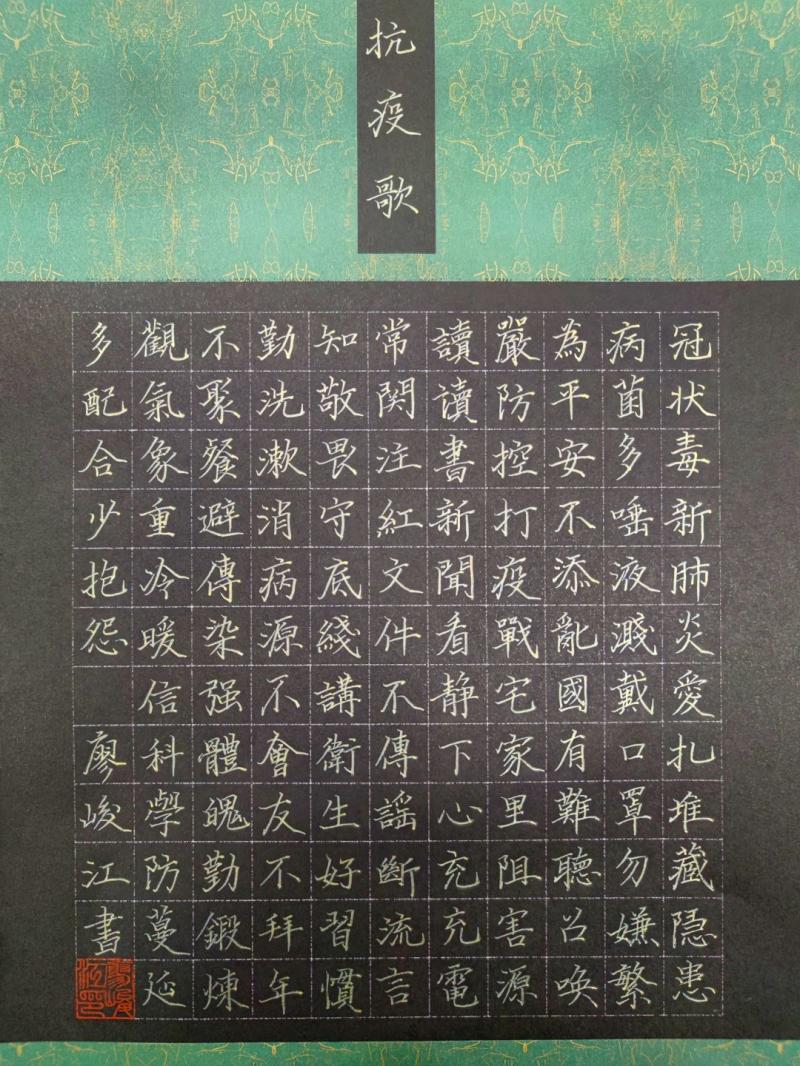 抗疫歌
冠状毒新肺炎愛扎堆藏隐患
病菌多唾液溅戴口罩勿嫌繁
為平安不添亂國有難聽召唤
嚴防控打疫戰宅家里阻害源
讀讀書新聞看静下心充充電
常関注紅文件不傳謡斷流言
知敬畏守底綫講衛生好習慣
勤洗漱消病源不會友不拜年
不聚餐避傳染强體魄勤鍛煉
觀氣象重冷暖信科學防蔓延
多配合少抱怨 廖峻江書